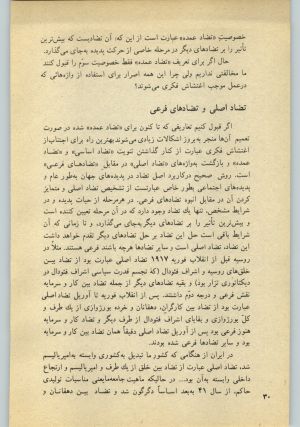 خصوصیت «تضاد عمده» عبارت است از این که: آن تضادیست که بیش‌ترین
تأثیر را بر تضادهای دیگر در مرحله خاصی از حرکت پدیده به‌جای می‌گذارد.
حال اگر برای تعریف «تضاد عمده» فقط خصوصیت سوّم را قبول کنند
ما مخالفتی نداریم ولی چرا این همه اصرار برای استفاده از واژه‌هائی که
درعمل موجب اغتشاش فکری می‌شوند؟
تضاد اصلی و تضادهای فرعی
اگر قبول کنیم تعاریفی که تا کنون برای «تضاد عمده» شده در صورت
تعمیم آن‌ها منجر به‌بروز اشکالات زیادی می‌شوند بهترین راه برای اجتناب‌از
اغتشاش فکری عبارت از کنار گذاشتن تئوریت «تضاد اساسی» و «تضاد
عمده» و بازگشت به‌واژه‌های «تضاد اصلی» در مقابل «تضادهای فرعی»
است. روش صحیح درکاربرد اصل تضاد در پدیده‌های جهان به‌طور عام و
پدیده‌های اجتماعی بطور خاص عبارتست از تشخیص تضاد اصلی و متمایز
کردن آن در مقابل انبوه تضادهای فرعی. در هرمرحله از حیات پدیده و در
شرایط مشخص، تنها یك تضاد وجود دارد که در آن مرحله تعیین کننده است
و بیش‌ترین تأثیر را بر تضادهای دیگر به‌جای می‌گذارد، و تا زمانی که آن
شرایط باقی است حل این تضاد بر حل تضادهای دیگر تقدم خواهد داشت
این تضاد، تضاد اصلی است و سایر تضادها هرچه باشند فرعی هستند. مثلاً در
روسیه قبل از انقلاب فوریه ۱۹۱۷ تضاد اصلی عبارت بود از تضاد بین
خلق‌های روسیه و اشراف فئودال (که تجسم قدرت سیاسی اشراف فئودال در
دیکتاتوری تزار بود) و بقیه تضادهای دیگر از جمله تضاد بین کار و سرمایه
نقش فرعی و درجه دوّم داشتند. پس از انقلاب فوریه تا آوریل تضاد اصلی
عبارت بود از تضاد بین کارگران، دهقانان و خرده بورژوازی از یك طرف و
کل بورژوازی و بقایای اشراف فئودال از طرف دیگر و تضاد کار و سرمایه
هنوز فرعی بود پس از آوریل تضاد اصلی دقیقاً همان تضاد بین کار و سرمایه
بود و سایر تضادها فرعی شده بودند.
در ایران از هنگامی که کشور ما تبدیل به‌کشوری وابسته به‌امپریالیسم
شد، تضاد اصلی عبارت از تضاد بین خلق از یك طرف و امپریالیسم و ارتجاع
داخلی وابسته به‌آن بود... در حالیکه ماهیت جامعه‌یعنی مناسبات تولیدی
حاکم، از سال ۴۱ به‌بعد اساساً دگرگون شد و تضاد بین دهقانان و
۳۰